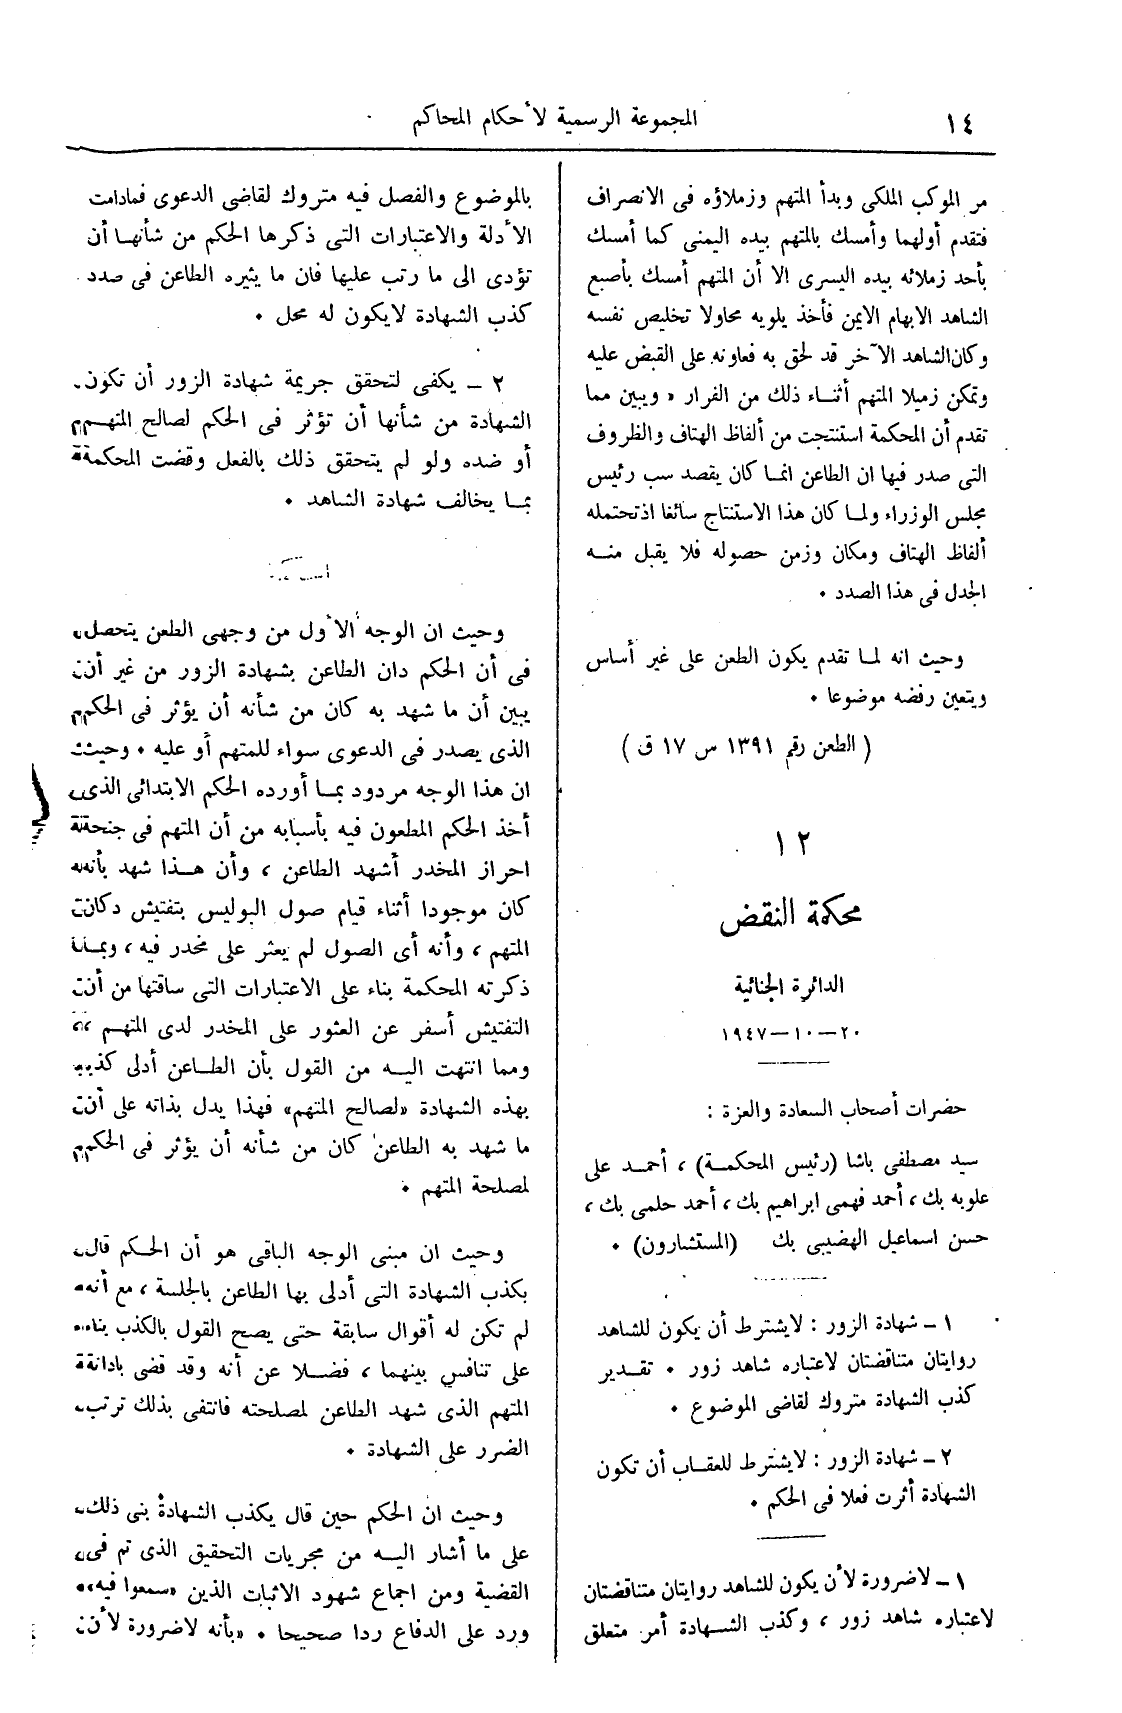 ١٤
المجموعة الرسمية لأحكام المحاكم
مر الموكب الملكى وبدأ المتهم وزملاؤه فى الانصراف
فتقدم أولهما وأمسك بالمتهم بيده اليمنى كما أمسك
بأحد زملائه بيده اليسرى الا أن المتهم أمسك بأصبع
الشاهد الابهام الايمن فأخذ يلويه محاولا تخليص نفسه
وكان الشاهد الآخر قد لحق به فعاونه على القبض عليه
وتمكن زميلا المتهم أثناء ذلك من الفرار » ويبين مما
تقدم أن المحكمة استنتجت من ألفاظ الهتاف والظروف
التى صدر فيها ان الطاعن انما كان يقصد سب رئيس
مجلس الوزراء ولما كان هذا الاستنتاج سائغا اذ تحتمله
ألفاظ الهتاف ومكان وزمن حصوله فلا يقبل منه
الجدل فى هذا الصدد ٠
وحيث انه لما تقدم يكون الطعن على غير أساس
ويتعين رفضه موضوعا ٠
( الطعن رقم ١٣٩١ س ١٧ ق )
١٢
محكمة النقض
الدائرة الجنائية
٢٠–١٠–١٩٤٧
حضرات أصحاب السعادة والعزة :
سيد مصطفى باشا (رئيس المحكمة) ، أحمد على
علوبه بك ، أحمد فهمى ابراهيم بك ، أحمد حلمى بك ،
حسن اسماعيل الهضيبى بك (المستشارون) ٠
١ – شهادة الزور : لا يشترط أن يكون للشاهد
روايتان متناقضتان لاعتباره شاهد زور ٠ تقدير
كذب الشهادة متروك لقاضى الموضوع ٠
٢ – شهادة الزور : لا يشترط للعقاب أن تكون
الشهادة أثرت فعلا فى الحكم ٠
١ – لاضرورة لأن يكون للشاهد روايتان متناقضتان
لاعتباره شاهد زور ، وكذب الشهادة أمر متعلق
بالموضوع والفصل فيه متروك لقاضى الدعوى فمادامت
الأدلة والاعتبارات التى ذكرها الحكم من شأنها أن
تؤدى الى ما رتب عليها فان ما يثيره الطاعن فى صدد
كذب الشهادة لا يكون له محل ٠
٢ – يكفى لتحقق جريمة شهادة الزور أن تكون
الشهادة من شأنها أن تؤثر فى الحكم لصالح المتهم
أو ضده ولو لم يتحقق ذلك بالفعل وقضت المحكمة
بما يخالف شهادة الشاهد ٠
وحيث ان الوجه الأول من وجهى الطعن يتحصل
فى أن الحكم دان الطاعن بشهادة الزور من غير أن
يبين أن ما شهد به كان من شأنه أن يؤثر فى الحكم
الذى يصدر فى الدعوى سواء للمتهم أو عليه ٠ وحيث
ان هذا الوجه مردود بما أورده الحكم الابتدائى الذى
أخذ الحكم المطعون فيه بأسبابه من أن المتهم فى جنحة
احراز المخدر أشهد الطاعن ، وأن هذا شهد بأنه
كان موجودا أثناء قيام صول البوليس بتفتيش دكان
المتهم ، وأنه أى الصول لم يعثر على مخدر فيه ، وبما
ذكرته المحكمة بناء على الاعتبارات التى ساقتها من أن
التفتيش أسفر عن العثور على المخدر لدى المتهم ،
ومما انتهت اليه من القول بأن الطاعن أدلى كذبا
بهذه الشهادة «لصالح المتهم» فهذا يدل بذاته على أن
ما شهد به الطاعن كان من شأنه أن يؤثر فى الحكم
لمصلحة المتهم ٠
وحيث ان مبنى الوجه الباقى هو أن الحكم قال
بكذب الشهادة التى أدلى بها الطاعن بالجلسة ، مع أنه
لم تكن له أقوال سابقة حتى يصح القول بالكذب بناء
على تنافس بينهما ، فضلا عن أنه وقد قضى بادانة
المتهم الذى شهد الطاعن لمصلحته فانتفى بذلك ترتب
الضرر على الشهادة ٠
وحيث ان الحكم حين قال يكذب الشهادة بنى ذلك
على ما أشار اليه من مجريات التحقيق الذى تم فى
القضية ومن اجماع شهود الاثبات الذين «سمعوا فيه»
ورد على الدفاع ردا صحيحا ٠ «بأنه لاضرورة لأن